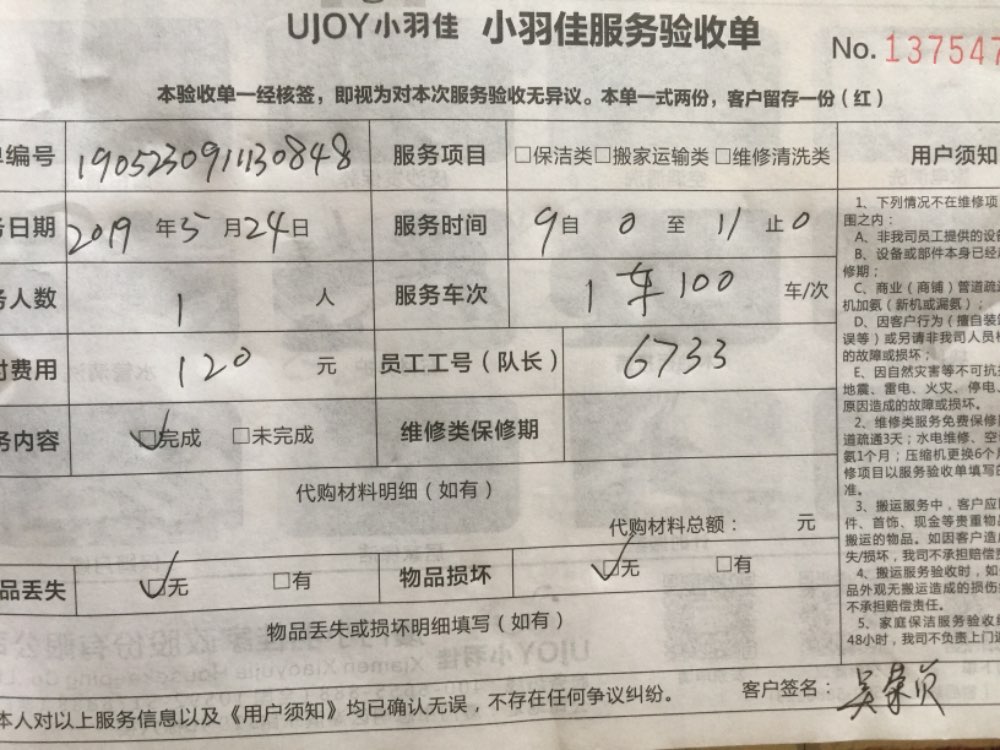 UJOY小羽佳 小羽佳服务验收单
No. 137547
本验收单一经核签，即视为对本次服务验收无异议。本单一式两份，客户留存一份（红）
单编号 190523091130848 服务项目 □保洁类□搬家运输类□维修清洗类 用户须知
务日期 2019年5月24日 服务时间 9自0至11止0
务人数 1人 服务车次 1车100 车/次
付费用 120元 员工工号（队长） 6733
务内容 □完成 □未完成 维修类保修期
代购材料明细（如有）
代购材料总额： 元
品丢失 □无 □有 物品损坏 □无 □有
物品丢失或损坏明细填写（如有）
本人对以上服务信息以及《用户须知》均已确认无误，不存在任何争议纠纷。 客户签名：吴
1、下列情况不在维修项
围之内：
A、非我司员工提供的设
B、设备或部件本身已经
修期；
C、商业（商铺）管道疏
机加氨（新机或漏氨）；
D、因客户行为（擅自装
误等）或另请非我司人员
的故障或损坏；
E、因自然灾害等不可抗
地震、雷电、火灾、停电、
原因造成的故障或损坏。
2、维修类服务免费保修
道疏通3天；水电维修、空
氨1个月；压缩机更换6个
修项目以服务验收单填写
准。
3、搬运服务中，客户应
件、首饰、现金等贵重物
搬运的物品。如因客户造
失/损坏，我司不承担赔偿
4、搬运服务验收时，如
品外观无搬运造成的损伤
不承担赔偿责任。
5、家庭保洁服务验收
48小时，我司不负责上门